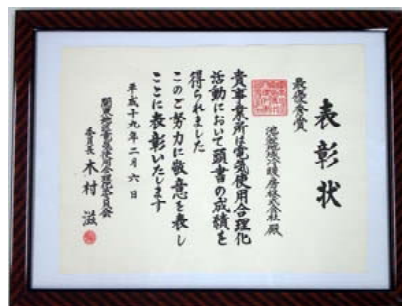 表彰状
最優秀賞
池袋地域冷暖房株式会社 殿
貴事業所は電気使用合理化
活動において頭書の成績を
得られました
このご努力に敬意を表し
ここに表彰いたします
平成十九年二月六日
関東地区電気使用合理化委員会
委員長 木村 滋